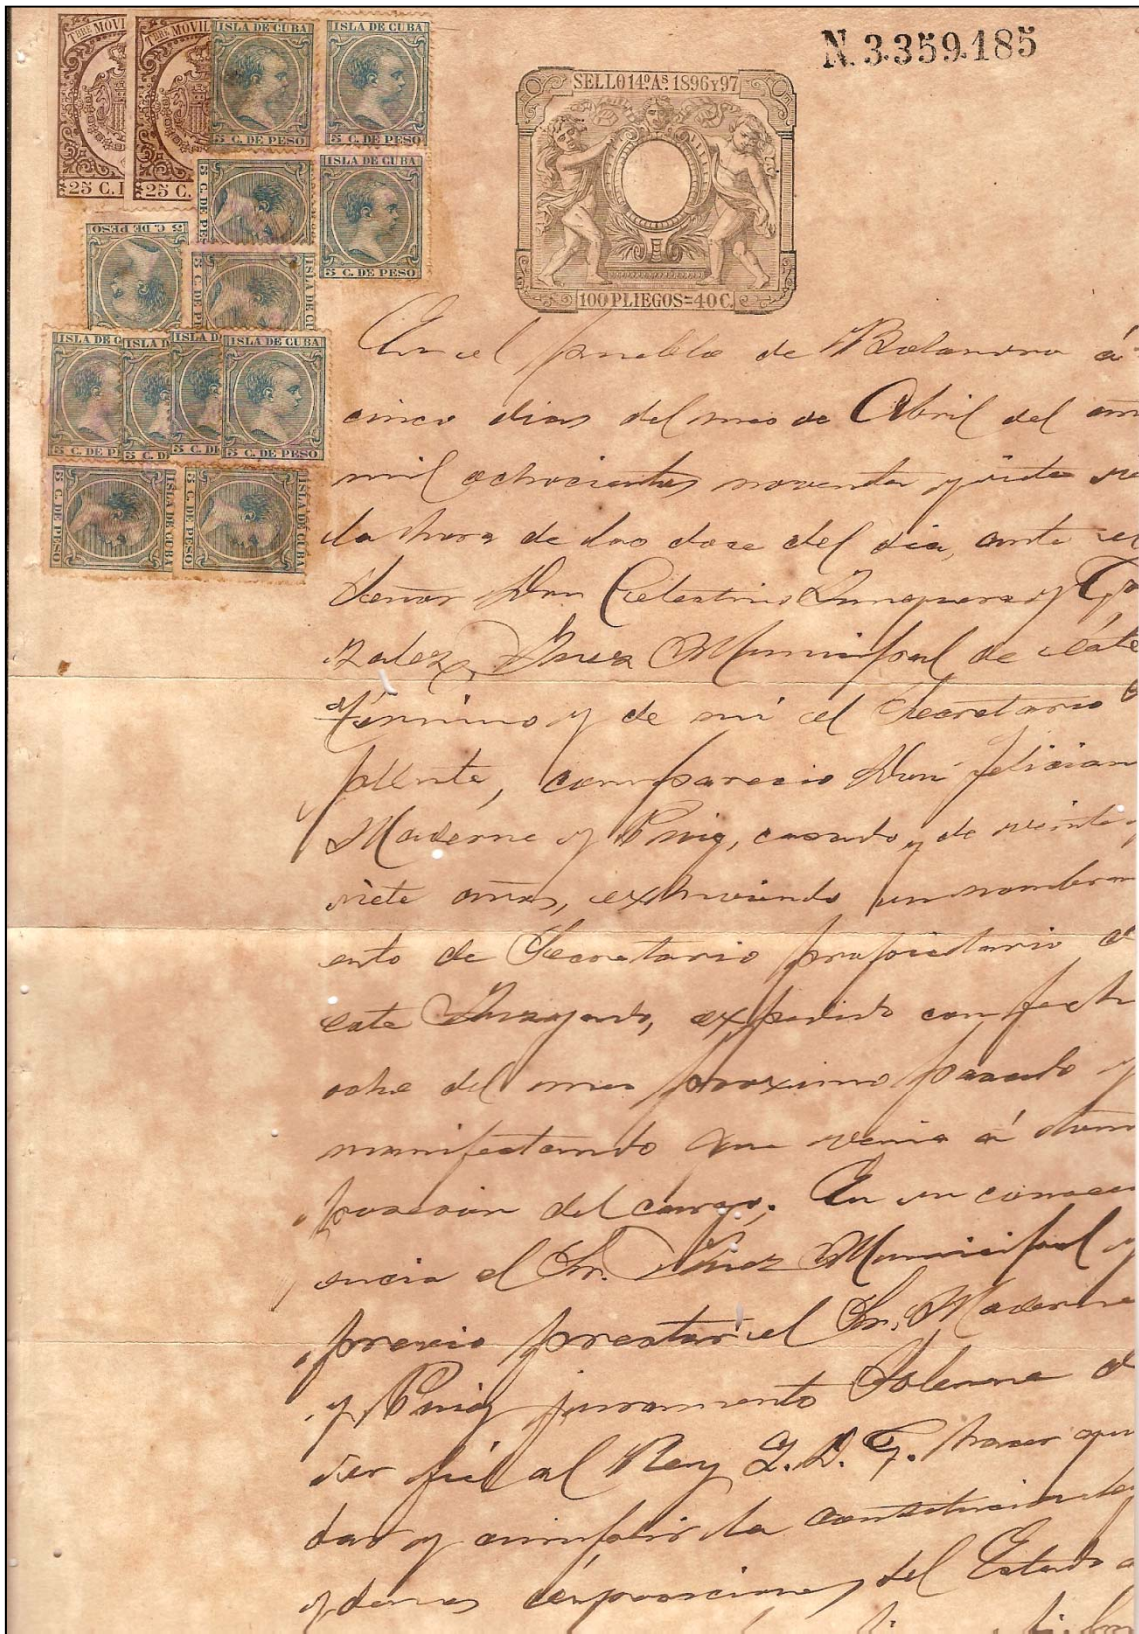 N. 3.359.185
SELLO 14º Aˢ 1896 Y 97
100 PLIEGOS=40 C.
TBRE MOVIL
25 C.
TBRE MOVIL
25 C.
ISLA DE CUBA
5 C. DE PESO
ISLA DE CUBA
5 C. DE PESO
5 C. DE PES
ISLA DE CUBA
5 C. DE PESO
5 C. DE PESO
ISLA DE CU
ISLA DE C
5 C. DE P
ISLA D
5 C.
ISLA D
5 C. D
ISLA DE CUBA
5 C. DE PESO
5 C. DE PESO
ISLA DE CUBA
5 C. DE PESO
ISLA DE CUBA
En el pueblo de á
cinco dias del mes de Abril del añ
mil ochocientos noventa y siete si
la hora de las doce del dia, ante el
Señor Don Celestino Junquera y Go
zalez, Juez Municipal de este
término y de mi el Secretario
plente, comparecio Don Felician
Maderne y Puig, casado y de veinte y
siete años, exhiviendo un nombram
ento de Secretario propietario d
este Juzgado, expedido con fech
ocho del mes proximo pasado y
manifestando que venia á tom
posesion del cargo; En su consecu
encia el Sr. Juez Municipal y
previo prestar el Sr. Maderne
y Puig juramento Solemne d
ser fiel al Rey Q. D. G. hacer guar
dar y cumplir la constitucion
y demas disposiciones del Estado